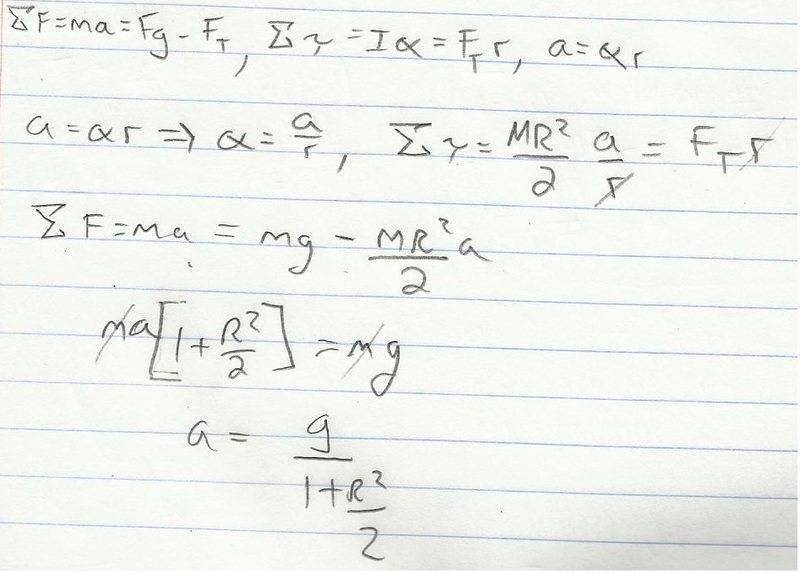 ΣF=ma=Fg-F_T, Στ=Iα=F_T r, a=αr
a=αr⇒α=a/r, Στ=MR²/2 a/r=F_T r
ΣF=ma=mg-MR²/2 a
ma[1+R²/2]=mg
a=g/(1+R²/2)